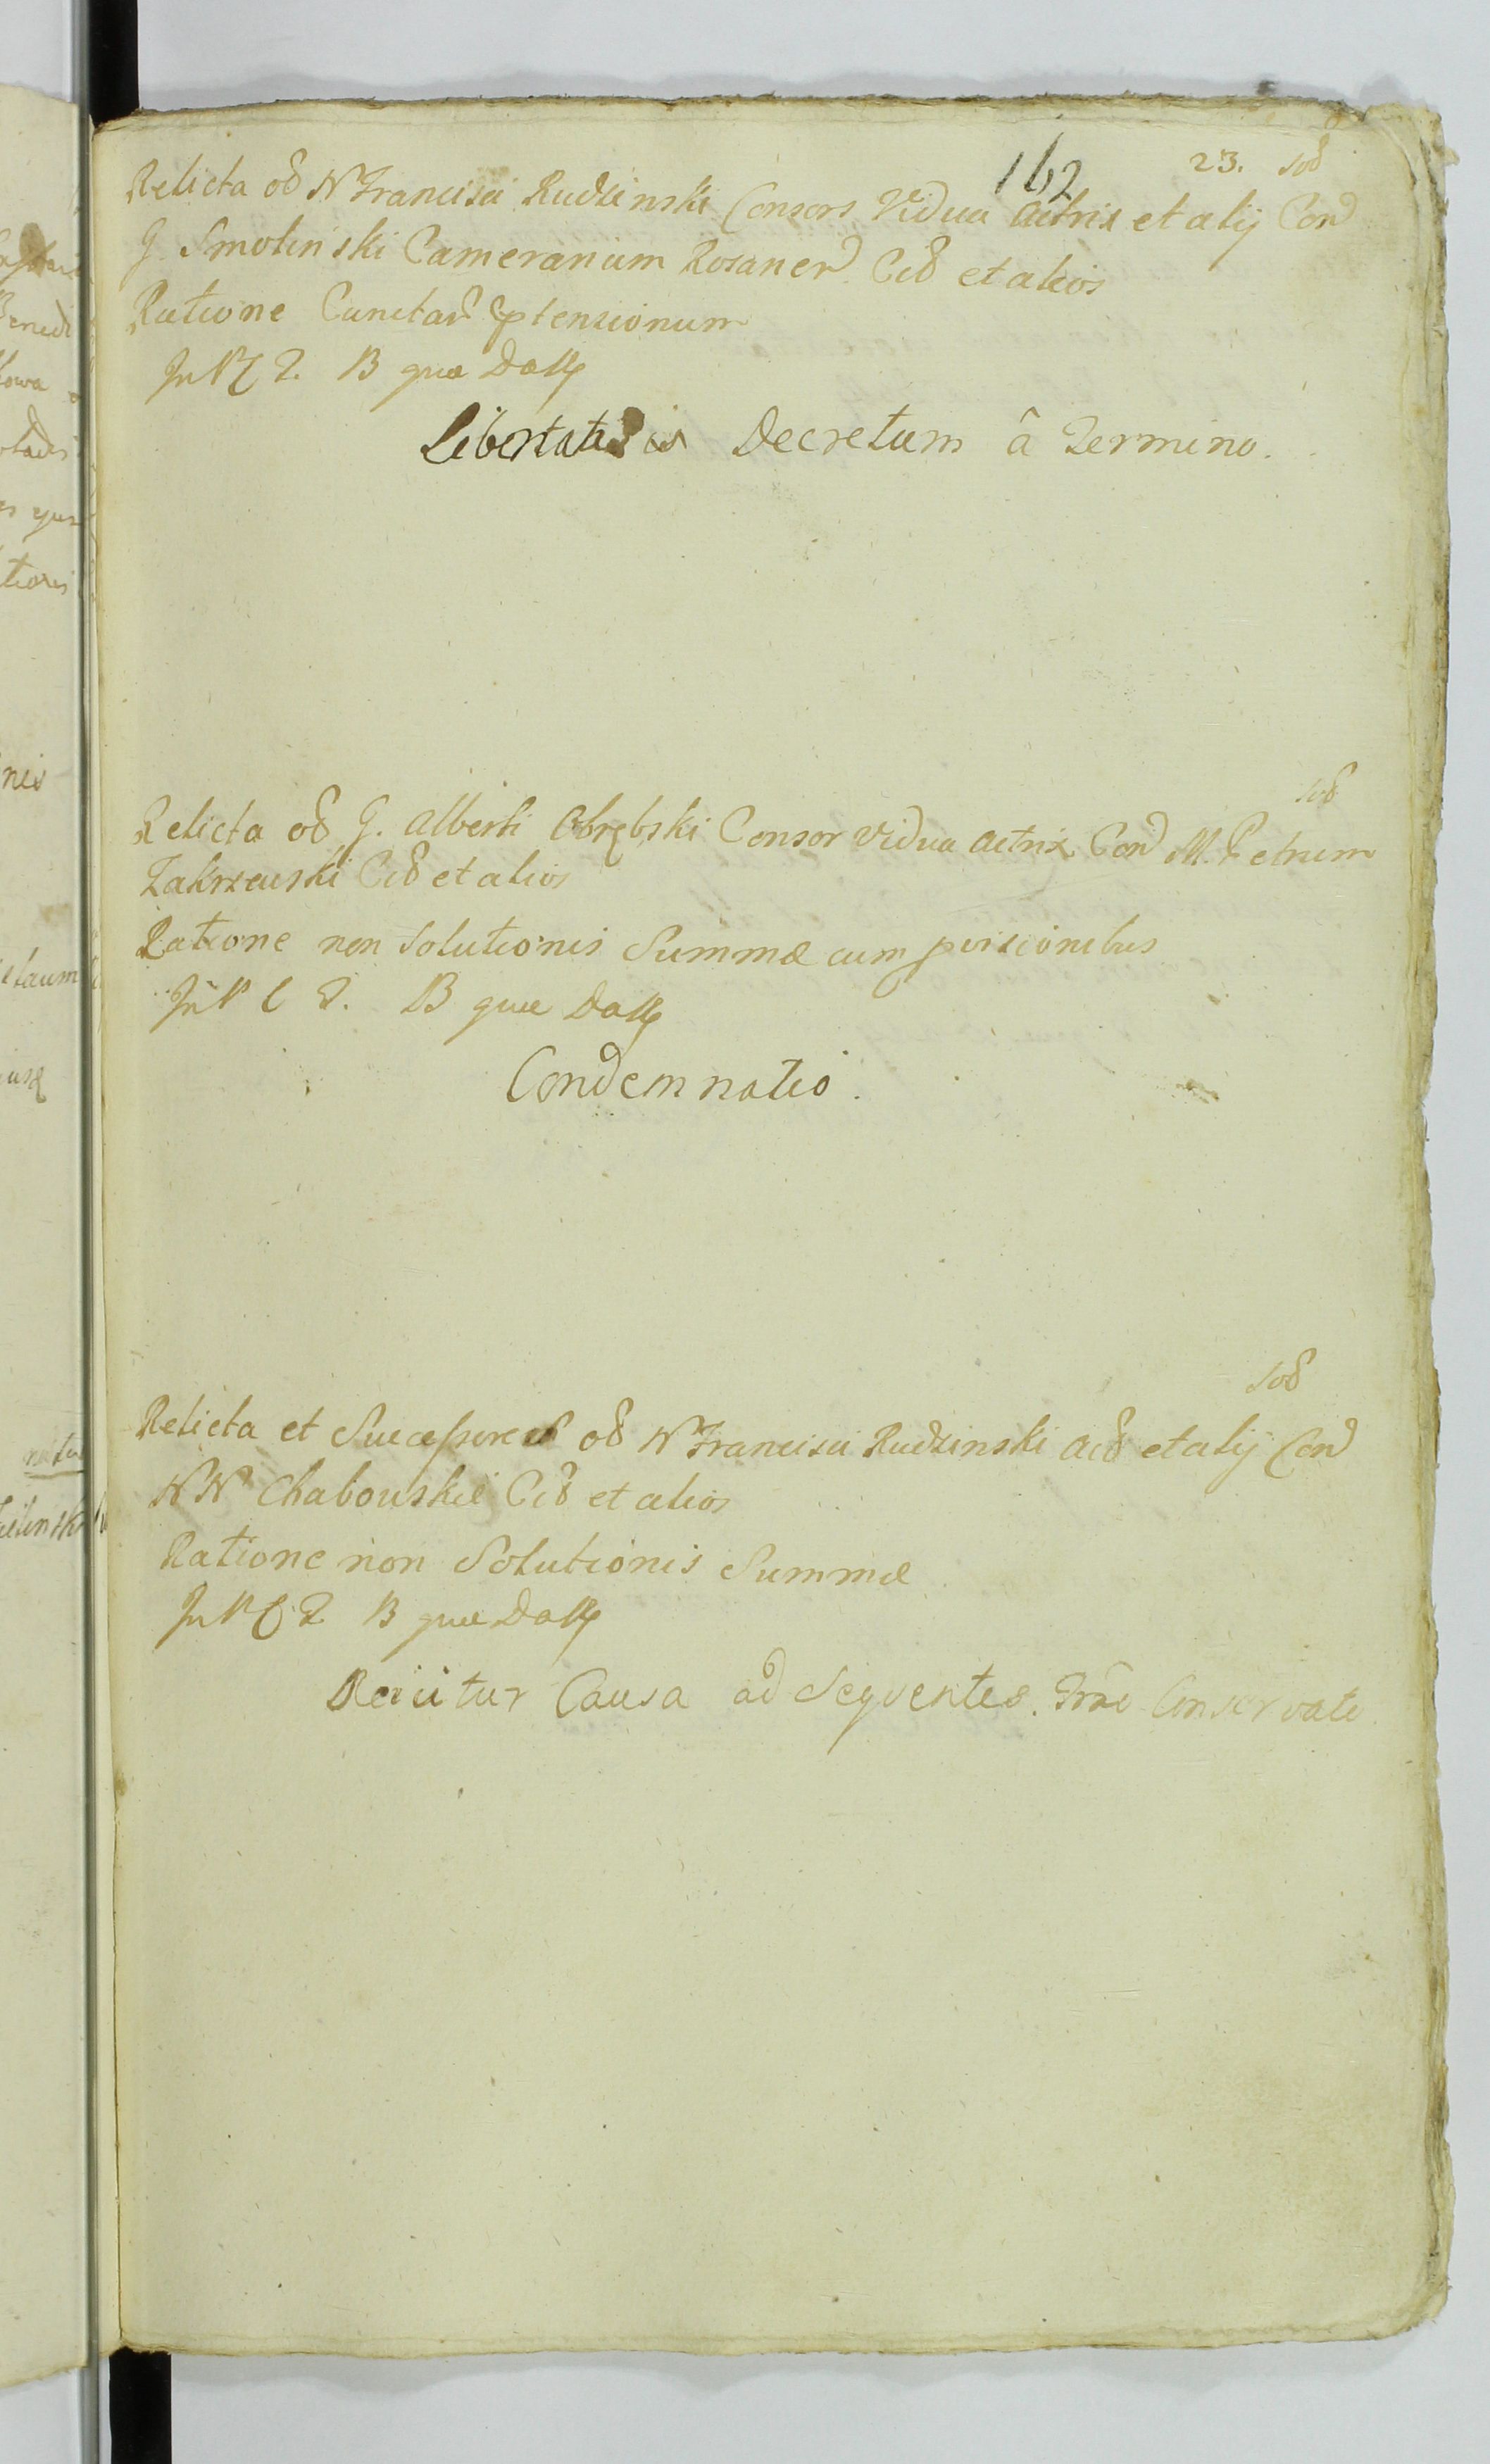 162 23. sol
Relicta ol N Francisci Rudzinski Consors Vidua actrix et alij Con
G. Smolinski Camerarium Rozanen Cit et alios
Ratione Cunctar ptensionum
In P C T. B qua Dass
Libertatis Decretum â Termino.
sol
Relicta ol G. Alberti Obrębski Consor vidua actrix Con M. Petrum
Zakrzewski Cit et alios
Ratione non Solutionis Summæ cum provisionibus
In P C T. B quæ Dass
Condemnatio.
sol
Relicta et Successores ol N Francisci Rudzinski act et alij Con
NN Chabowskie Cit et alios
Ratione non Solutionis Summæ
In P C T B quæ Dass
Reiicitur Causa ad Sequentes. Trmo Conservato